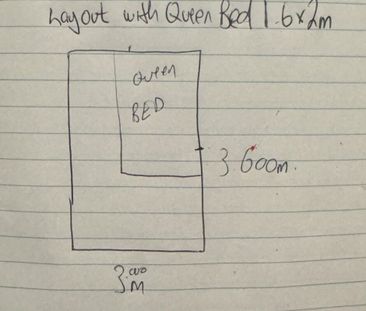 Layout with Queen Bed 1.6x2m
Queen
BED
3.600m.
3.000
M